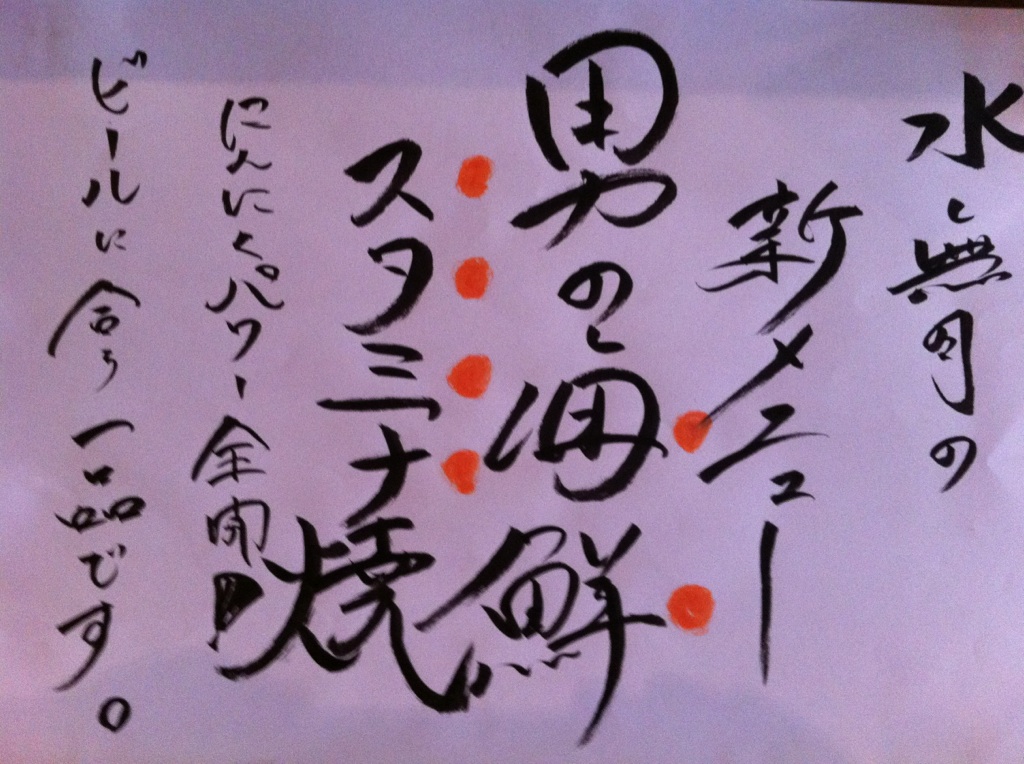 水無月の
新メニュー
男の海鮮
スタミナ焼
にんにくパワー全開!
ビールに合う一品です。